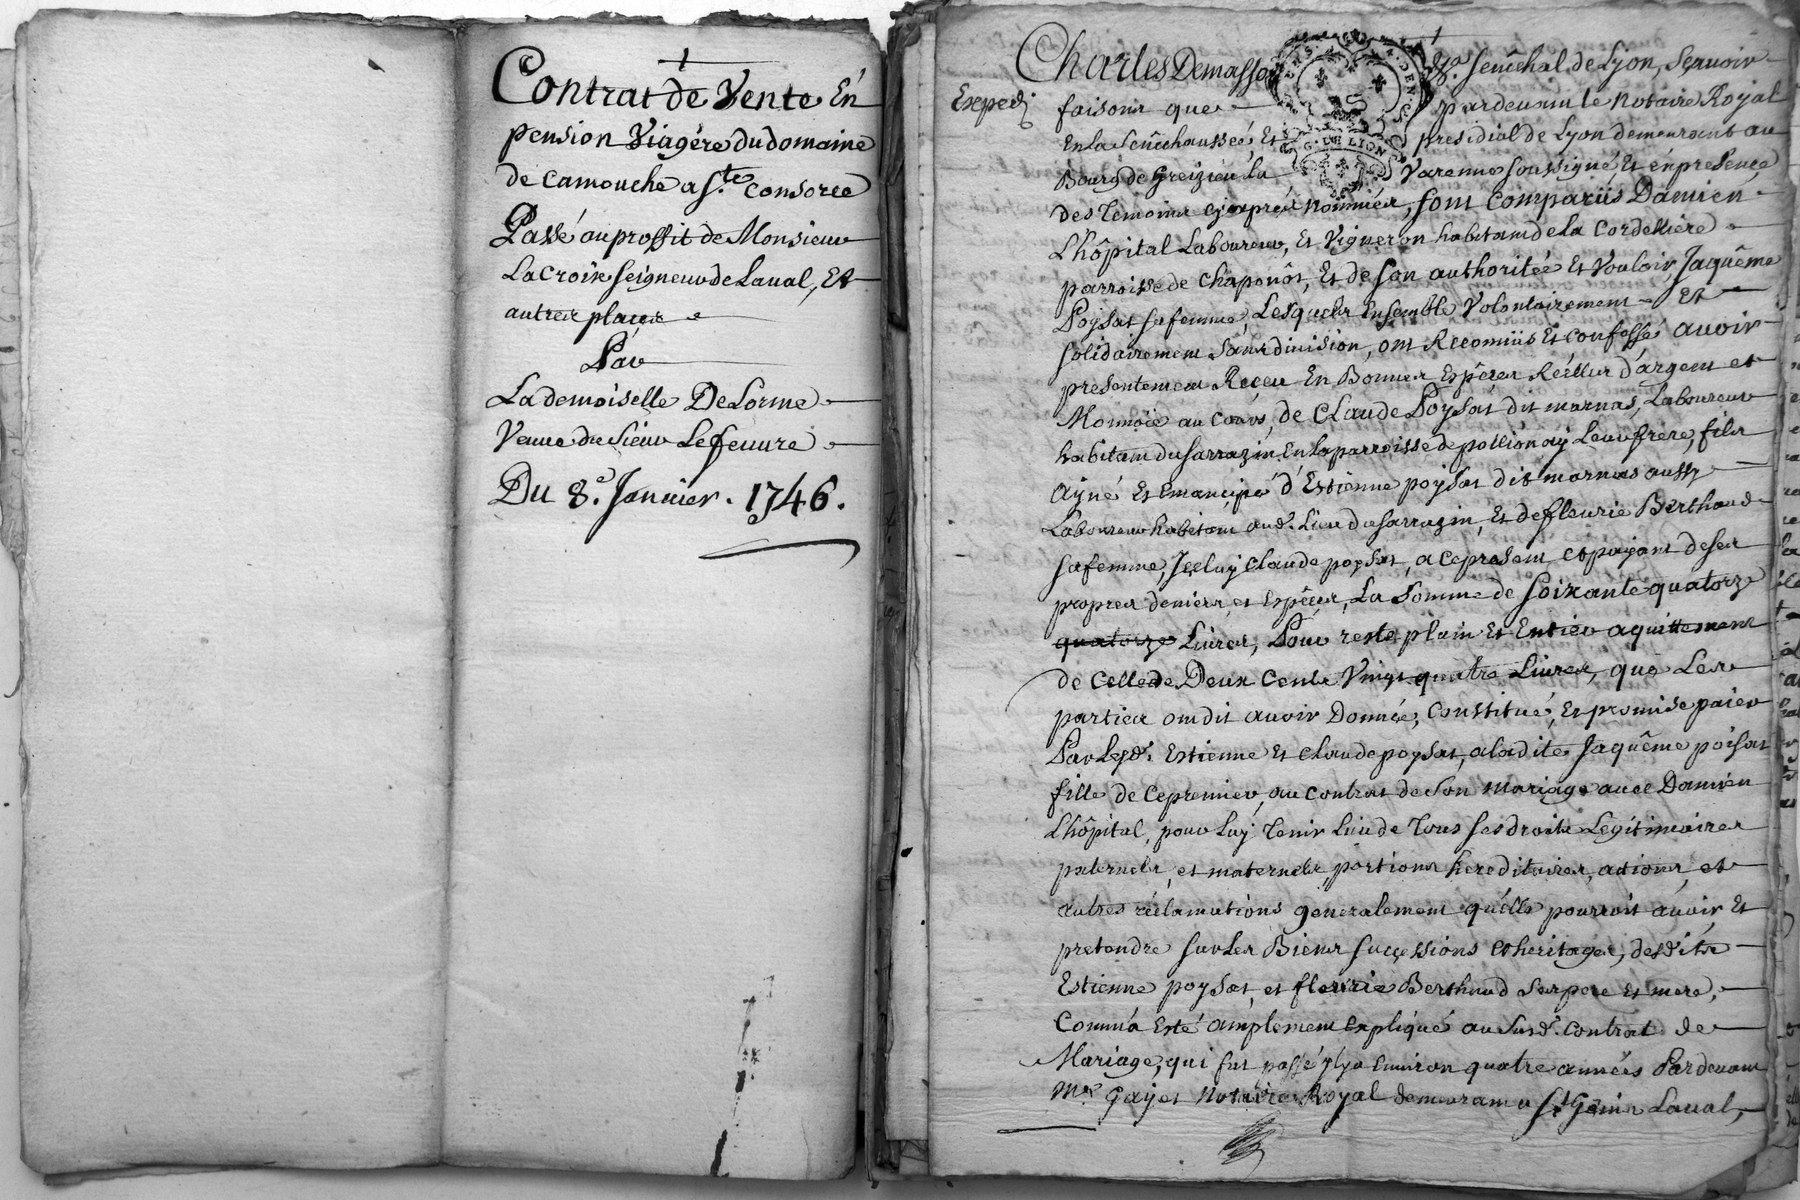 Contrat de Vente En
pension Viagére du domaine
de camouche a S.te Consorce
Passé au proffit de Monsieur
La croix seigneur de Laual, Et
autres places
Par
La demoiselle DeLorme
Veuue du sieur Lefeuure
Du 8.e Januier. 1746.
Charles Demasso Senêchal de Lyon, Sçauoir
Expedi
faisons que pardeuant le Notaire Royal
En la Senêchausseé, Et presidial de Lyon demeurant au
Bourg de Greizieu La Varenne soussigné, Et én presence
des Temoins cy aprés nommés, sont Compariis Damien
L'hôpital Laboureur, Et Vigneron habitant de la Cordelliere
parroisse de Chaponôst, Et de son authoritée Et Vouloir, Jaquême
Poysat sa femme, Lesquels Ensemble Volontairement Et
solidairement sans diuision, ont Reconniis Et confessé auoir
presentement Reçeu En Bonnes Espêces Réelles d'argent et
Monnoie au Cours, de Claude Poysat dit marnas, Laboureur
habitant du sarrazin En la parroisse de pollionaÿ Leur frere, fils
ayné Et Emancipé d'Estienne poysat dit marnas aussy
Laboureur habitant aud. Lieu du sarrazin, Et de fleurie Berthaud
sa femme, Jçeluÿ Claude poysat, a ce present, et payant de ses
propres deniers et Espêces, La Somme de soixante quatorze
quatorze Liures, Pour reste plain Et Entier aquittement
de Celle de Deux Cents Vingt quatre Liures, que Les
parties ont dit auoir Donnée, Constitué, Et promise païer
Par Lesd. Estienne Et Claude poysat, a ladite Jaquême poisat
fille de ce premier, au Contrat de son mariage auec Damien
L'hôpital, pour Luÿ Tenir Lieu de Tous ses droits Legitimaires
paternels, et maternels, portions hereditaires, actions, et
autres réclamations generalement qu'elle pourroit auoir, Et
pretendre sur Les Biens Successions et heritages, desdits
Estienne poysat, et fleurie Berthaud Ses pere Et mere,
Comm'a Esté amplement Expliqué au Susd. contrat de
Mariage, qui fut passé jl y a Enuiron quatre années Pardeuant
M.e Gayet Notaire Royal demeurant a S.t Genis Laual,